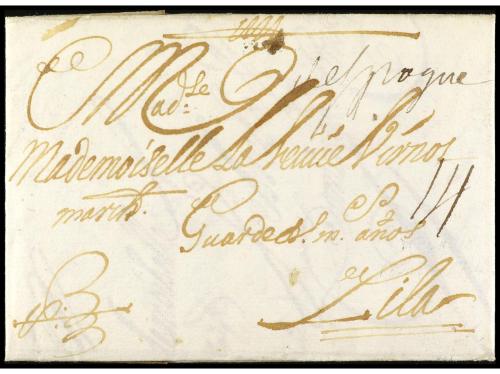 A Mad.le
d'espagne
Mademoiselle La Veuue Vionos
march.
Guarde ds. m. años
Lila